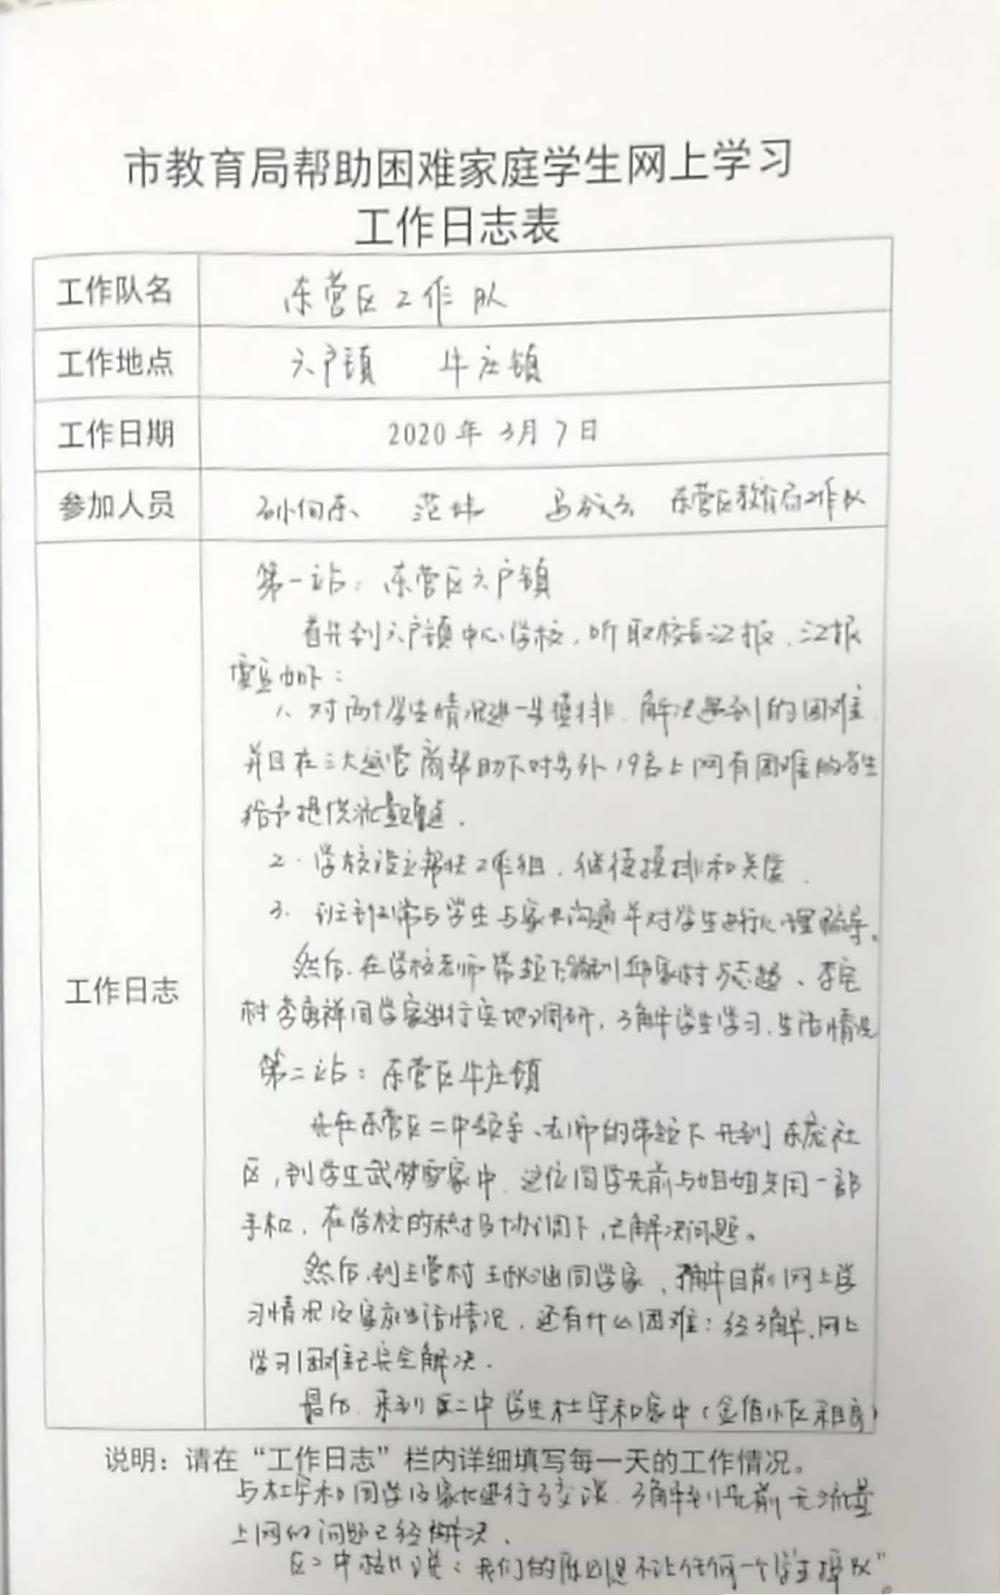 市教育局帮助困难家庭学生网上学习
工作日志表
工作队名 东营区工作队
工作地点 六户镇 牛庄镇
工作日期 2020年3月7日
参加人员 孙向东 范 马 东营区教育局工作队
工作日志
第一站：东营区六户镇
首先到六户镇中心学校，听取校长汇报，汇报
要点如下：
1、对两个学生情况进一步摸排，解决遇到的困难
并且在三大运营商帮助下对另外19名上网有困难的学生
给予提供流量赠送.
2.学校设立帮扶工作组，继续摸排和关爱.
3.班主任常与学生与家长沟通并对学生进行心理疏导。
然后，在学校老师带领下 到邱家村 志超、李宅
村李 祥同学家进行实地调研，了解学生学习、生活情况
第二站：东营区牛庄镇
先在东营区二中领导、老师的带领下先到东庞社
区，到学生武梦雪家中，这位同学先前与姐姐共用一部
手机，在学校的积极协调下，已解决问题。
然后，到王营村王秋涵同学家，了解目前网上学
习情况及家庭生活情况，还有什么困难：经了解，网上
学习困难已完全解决.
最后，来到区二中学生杜宇和家中（金 小区租房）
说明：请在“工作日志”栏内详细填写每一天的工作情况。
与杜宇和同学及家长进行了交谈，了解到先前无流量
上网的问题已经解决.
区二中校长说：我们的原则是不让任何一个学生掉队”。